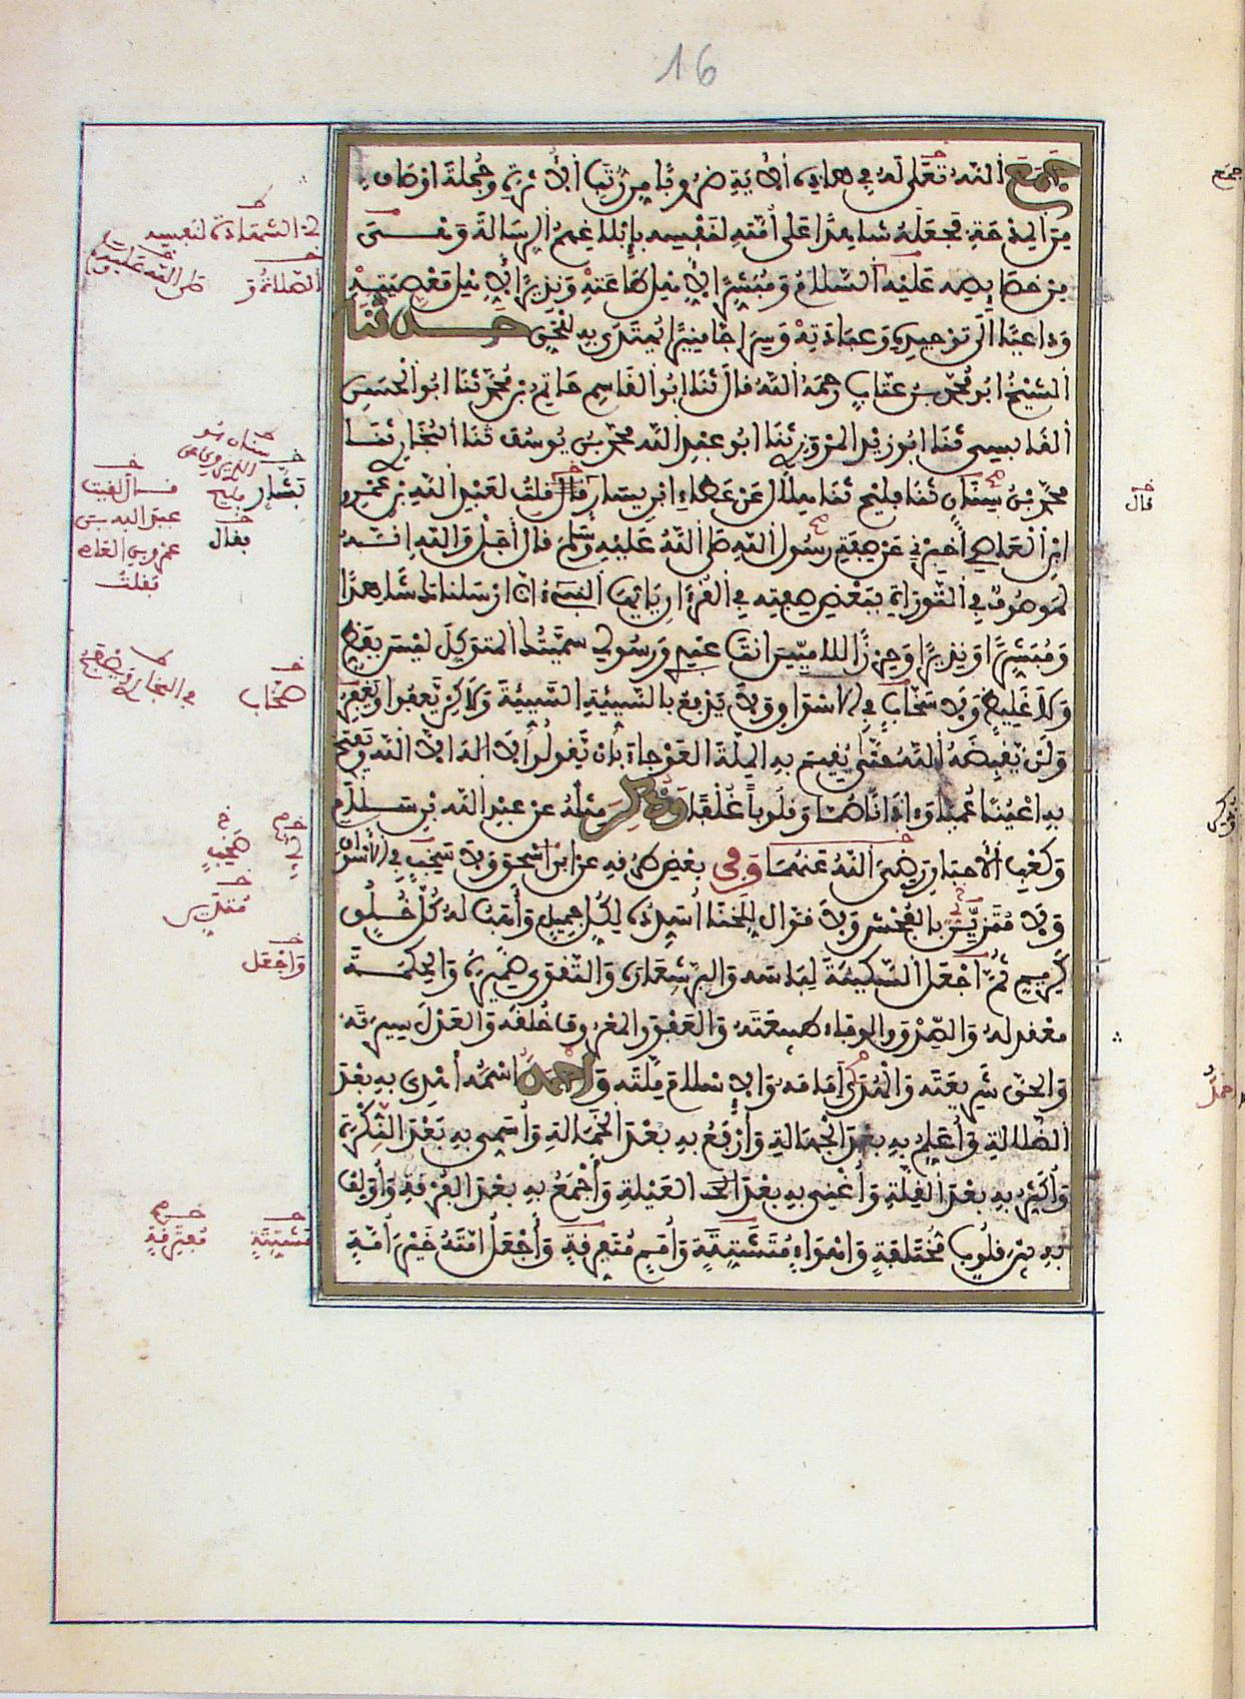 16
جَمَعَ اللَّهُ تَعَلَى لَهُ فِي هَاذِهِ الْأَيَةِ ضُرُوبًا مِن رُّتَبِ الْأُثْرَةِ وَجُمْلَةَ أَوْصَافٍ
مِنَ الْمِدْحَةِ فَجَعَلَهُ شَاهِدًا عَلَى أُمَّتِهِ لِنَفْسِهِ بِإِبْلَاغِهِمُ الرِّسَالَةَ وَهِيَ
مِنْ خَصَائِصِهِ عَلَيْهِ السَّلَامُ وَمُبَشِّرًا لِأَهْلِ طَاعَتِهِ وَنَذِيرًا لِأَهْلِ مَعْصِيَتِهِ
وَدَاعِيًا إِلَى تَوْحِيدِهِ وَعِبَادَتِهِ وَسِرَاجًا مُنِيرًا يُهْتَدَى بِهِ لِلْحَقِّ حَدَّثَنَا
الشَّيْخُ أَبُو مُحَمَّدِ بْنُ عَتَّابٍ رَحِمَهُ اللَّهُ قَالَ ثَنَا أَبُو الْقَاسِمِ حَاتِمُ بْنُ مُحَمَّدٍ ثَنَا أَبُو الْحَسَنِ
الْقَابِسِي ثَنَا أَبُو زَيْدٍ الْمَرْوَزِي ثَنَا أَبُو عَبْدِ اللَّهِ مُحَمَّدُ بْنُ يُوسُفَ ثَنَا الْبُخَارِي ثَنَا
مُحَمَّدُ بْنُ سِنَانٍ ثَنَا فُلَيْحٌ ثَنَا هِلَالٌ عَنْ عَطَاءِ ابْنِ يَسَارٍ قَالَ قُلْتُ لِعَبْدِ اللَّهِ بْنِ عَمْرِو
ابْنِ الْعَاصِي أَخْبِرْنِي عَنْ صِفَةِ رَسُولِ اللَّهِ صَلَّى اللَّهُ عَلَيْهِ وَسَلَّمَ قَالَ أَجَلْ وَاللَّهِ إِنَّهُ
لَمَوْصُوفٌ فِي التَّوْرَاةِ بِبَعْضِ صِفَتِهِ فِي الْقُرْءَانِ يَأَيُّهَا النَّبِيءُ إِنَّا أَرْسَلْنَاكَ شَاهِدًا
وَمُبَشِّرًا وَنَذِيرًا وَحِرْزًا لِلْأُمِّيِّينَ أَنْتَ عَبْدِي وَرَسُولِي سَمَّيْتُكَ الْمُتَوَكِّلَ لَيْسَ بِفَظٍّ
وَلَا غَلِيظٍ وَلَا سَخَّابٍ فِي الْأَسْوَاقِ وَلَا يَدْفَعُ بِالسَّيِّئَةِ السَّيِّئَةَ وَلَاكِنْ يَعْفُوا وَيَغْفِرُ
وَلَنْ يَقْبِضَهُ اللَّهُ حَتَّى يُقِيمَ بِهِ الْمِلَّةَ الْعَوْجَاءَ بِأَنْ يَقُولُوا لَا إِلَهَ إِلَّا اللَّهُ وَيَفْتَحَ
بِهِ أَعْيُنًا عُمْيًا وَءَاذَانًا صُمًّا وَقُلُوبًا غُلْفًا وَذُكِرَ مِثْلُهُ عَنْ عَبْدِ اللَّهِ بْنِ سَلَامٍ
وَكَعْبِ الْأَحْبَارِ رَضِيَ اللَّهُ عَنْهُمَا وَفِي بَعْضِ طُرُقِهِ عَنِ ابْنِ إِسْحَقَ وَلَا سَخِبٍ فِي الْأَسْوَاقِ
وَلَا مُتَزَيِّنٍ بِالْفُحْشِ وَلَا قَوَّالٍ لِلْخَنَا أُسَدِّدُهُ لِكُلِّ جَمِيلٍ وَأَهَبُ لَهُ كُلَّ خُلُقٍ
كَرِيمٍ ثُمَّ أَجْعَلُ السَّكِينَةَ لِبَاسَهُ وَالْبِرَّ شِعَارَهُ وَالتَّقْوَى ضَمِيرَهُ وَالْحِكْمَةَ
مَعْقُولَهُ وَالصِّدْقَ وَالْوَفَاءَ طَبِيعَتَهُ وَالْعَفْوَ وَالْمَعْرُوفَ خُلُقَهُ وَالْعَدْلَ سِيرَتَهُ
وَالْحَقَّ شَرِيعَتَهُ وَالْهُدَى إِمَامَهُ وَالْإِسْلَامَ مِلَّتَهُ وَأَحْمَدَ اسْمَهُ أَهْدِي بِهِ بَعْدَ
الضَّلَالَةِ وَأُعَلِّمُ بِهِ بَعْدَ الْجَهَالَةِ وَأَرْفَعُ بِهِ بَعْدَ الْخَمَالَةِ وَأُسَمِّي بِهِ بَعْدَ النَّكِرَةِ
وَأُكَثِّرُ بِهِ بَعْدَ الْقِلَّةِ وَأُغْنِي بِهِ بَعْدَ الْعَيْلَةِ وَأَجْمَعُ بِهِ بَعْدَ الْفُرْقَةِ وَأُؤَلِّفُ
بِهِ بَيْنَ قُلُوبٍ مُخْتَلِفَةٍ وَأَهْوَاءٍ مُتَشَتِّتَةٍ وَأُمَمٍ مُتَفَرِّقَةٍ وَأَجْعَلُ أُمَّتَهُ خَيْرَ أُمَّةٍ
الشهادة لنفسه
بَشَّار
فليح
قال لقيت
عبد الله بن
عمرو بن العاص
فقلت
فقال
صخاب
في البخاري
صَخِبٍ
وَاجْعَل
مُتَفَرِّقَةٍ
قال
جَمَع
احمدُ